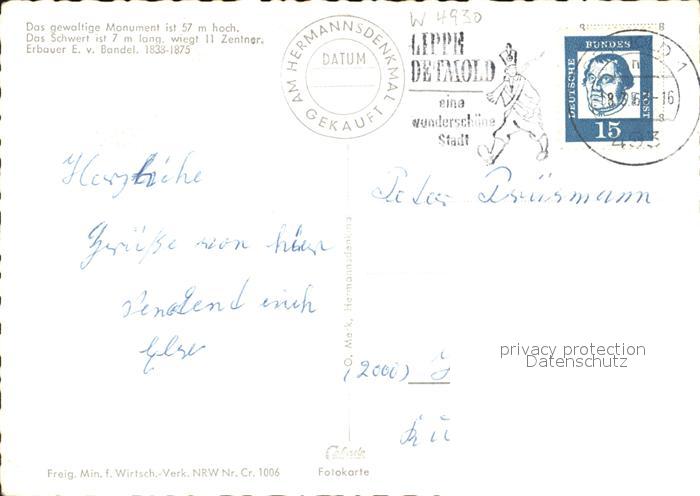 Das gewaltige Monument ist 57 m hoch.
Das Schwert ist 7 m lang, wiegt 11 Zentner.
Erbauer E. v. Bandel. 1838-1875
AM HERMANNSDENKMAL
DATUM
GEKAUFT
W 4930
LIPPE
DETMOLD
eine
wunderschöne
Stadt
DEUTSCHE
BUNDES
POST
15
493
Herzliche
Grüße von hier
sendend euch
Peter Brüsmann
(2000)
privacy protection
Datenschutz
Freig. Min. f. Wirtsch.-Verk. NRW Nr. Cr. 1006
Fotokarte